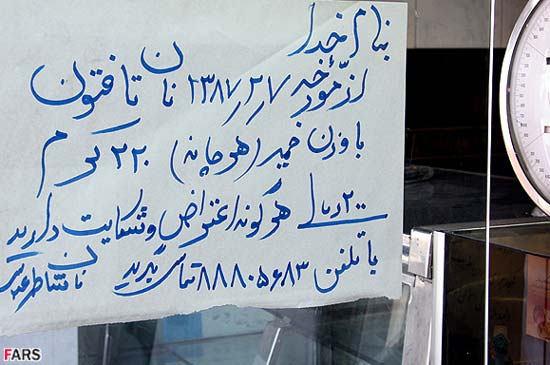 بنام خدا
از مورخه ۱۳۸۷/۲/۷ نان تافتون
با وزن خمیر (هر چانه) ۲۲۰ گرم
۲۰۰ ریال هرگونه اعتراض و شکایت دارید
با تلفن ۸۸۸۰۵۶۸۳ تماس بگیرید
FARS